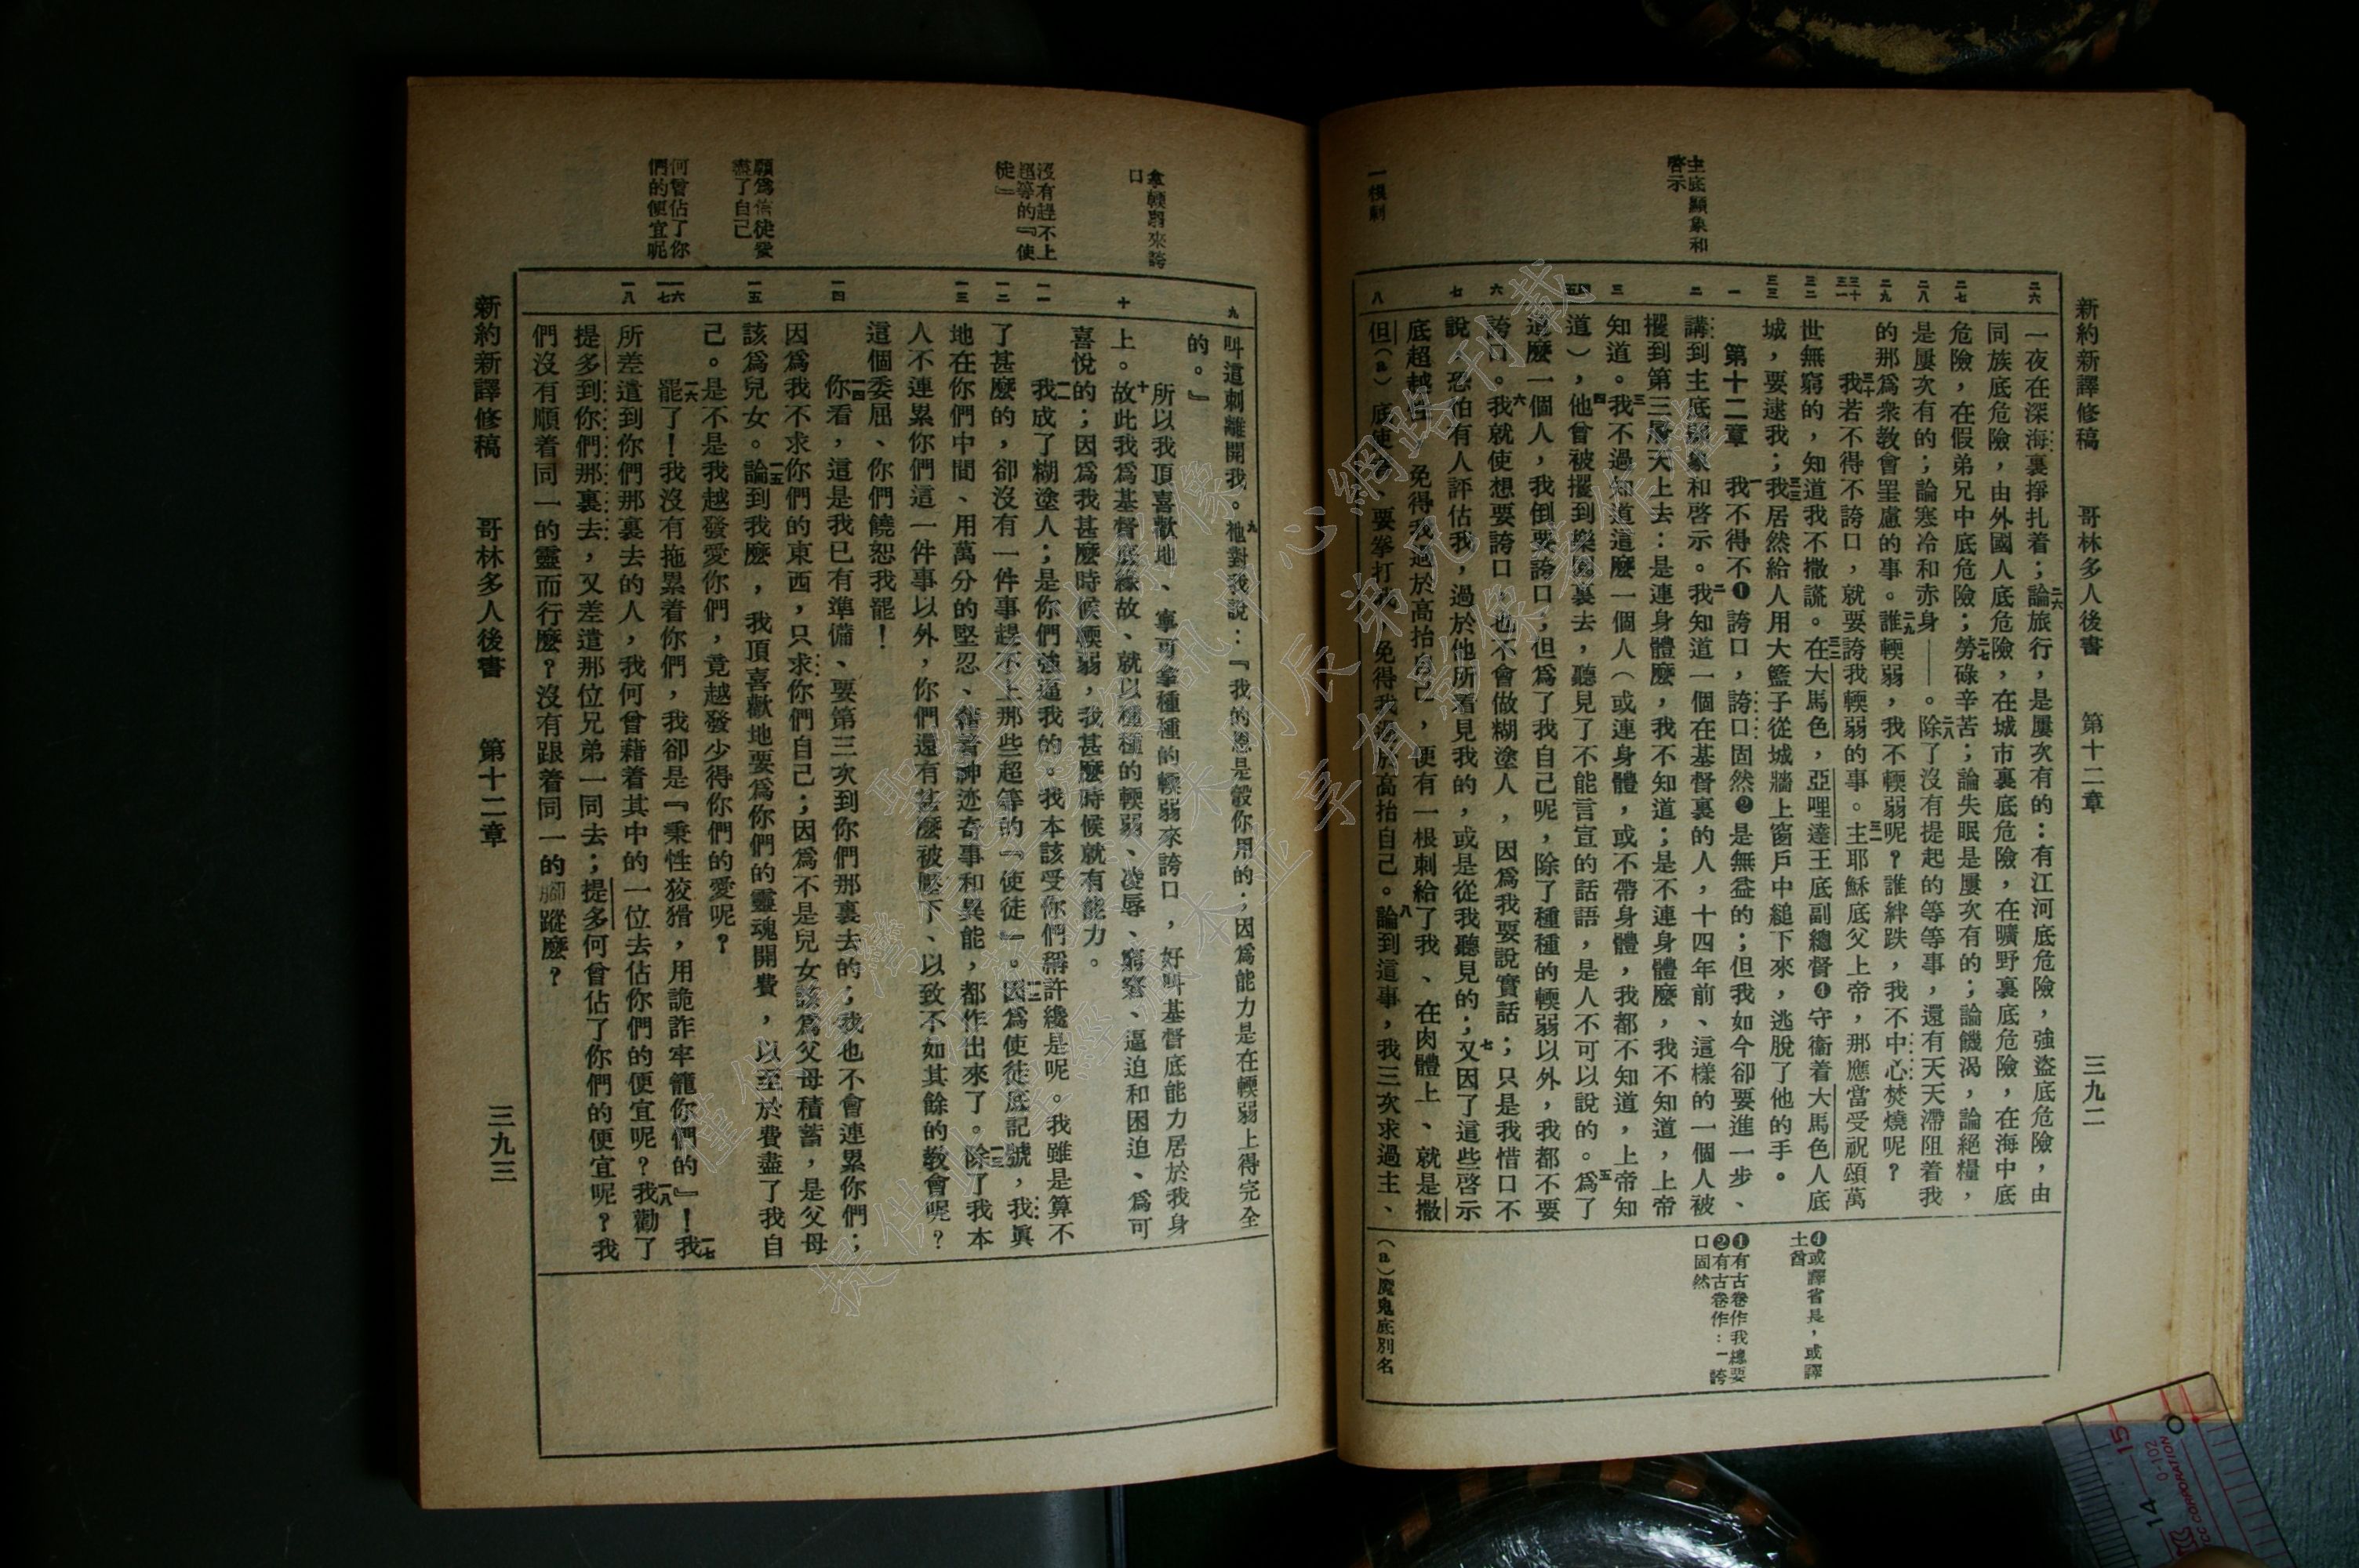 新約新譯修稿 哥林多人後書 第十二章 三九二
主底顯象和
啓示
一根刺
二六
二七
二八
二九
三十
三一
三二
三三
一
二
三
四
五
六
七
八
一夜在深海裏掙扎着；二六論旅行，是屢次有的：有江河底危險，強盜底危險，由
同族底危險，由外國人底危險，在城市裏底危險，在曠野裏底危險，在海中底
危險，在假弟兄中底危險；二七勞碌辛苦；論失眠是屢次有的；論饑渴，論絕糧，
是屢次有的；論寒冷和赤身——。二八除了沒有提起的等等事，還有天天滯阻着我
的那爲衆教會罣慮的事。二九誰輭弱，我不輭弱呢？誰絆跌，我不中心焚燒呢？
三十我若不得不誇口，就要誇我輭弱的事。三一主耶穌底父上帝，那應當受祝頌萬
世無窮的，知道我不撒謊。三二在大馬色，亞哩達王底副總督❹守衞着大馬色人底
城，要逮我；三三我居然給人用大籃子從城牆上窗戶中縋下來，逃脫了他的手。
第十二章 一我不得不❶誇口，誇口固然❷是無益的；但我如今卻要進一步、
講到主底顯象和啓示。二我知道一個在基督裏的人，十四年前、這樣的一個人被
擢到第三層天上去：是連身體麼，我不知道；是不連身體麼，我不知道，上帝
知道。三我不過知道這麼一個人（或連身體，或不帶身體，我都不知道，上帝知
道），四他曾被擢到樂園裏去，聽見了不能言宣的話語，是人不可以說的。五爲了
這麼一個人，我倒要誇口；但爲了我自己呢，除了種種的輭弱以外，我都不要
誇口。六我就使想要誇口，也不會做糊塗人，因爲我要說實話；只是我惜口不
說，恐怕有人評估我，過於他所看見我的，或是從我聽見的；七又因了這些啓示
底超越性，免得我過於高抬自己，便有一根刺給了我、在肉體上、就是撒
但（a）底使者，要拳打我，免得我過於高抬自己。八論到這事，我三次求過主、
❹或譯省是，或譯
土酋
❶有古卷作我總要
❷有古卷作：一誇
口固然
（a）魔鬼底別名
拿輭弱來誇
口
沒有趕不上
超等的『使
徒』
願爲信徒發
盡了自己
何曾佔了你
們的便宜呢
九
十
一一
一二
一三
一四
一五
一六
一七
一八
叫這刺離開我。九祂對我說：『我的恩是彀你用的；因爲能力是在輭弱上得完全
的。』
所以我頂喜歡地、寧可拿種種的輭弱來誇口，好叫基督底能力居於我身
上。十故此我爲基督底緣故、就以種種的輭弱、凌辱、窮窘、逼迫和困迫、爲可
喜悅的；因爲我甚麼時候輭弱，我甚麼時候就有能力。
一一我成了糊塗人；是你們強逼我的。我本該受你們稱許纔是呢。我雖是算不
了甚麼的，卻沒有一件事趕不上那些超等的『使徒』。一二因爲使徒底記號，我眞
地在你們中間、用萬分的堅忍、藉着神迹奇事和異能，都作出來了。一三除了我本
人不連累你們這一件事以外，你們還有甚麼被壓下、以致不如其餘的教會呢？
這個委屈、你們饒恕我罷！
一四你看，這是我已有準備、要第三次到你們那裏去的；我也不會連累你們；
因爲我不求你們的東西，只求你們自己；因爲不是兒女該爲父母積蓄，是父母
該爲兒女。一五論到我麼，我頂喜歡地要爲你們的靈魂開費，以至於費盡了我自
己。是不是我越發愛你們，竟越發少得你們的愛呢？
一六罷了！我沒有拖累着你們，我卻是『秉性狡猾，用詭詐牢籠你們的』！一七我
所差遣到你們那裏去的人，我何曾藉着其中的一位去佔你們的便宜呢？一八我勸了
提多到你們那裏去，又差遣那位兄弟一同去；提多何曾佔了你們的便宜呢？我
們沒有順着同一的靈而行麼？沒有跟着同一的腳蹤麼？
新約新譯修稿 哥林多人後書 第十二章 三九三
15
14